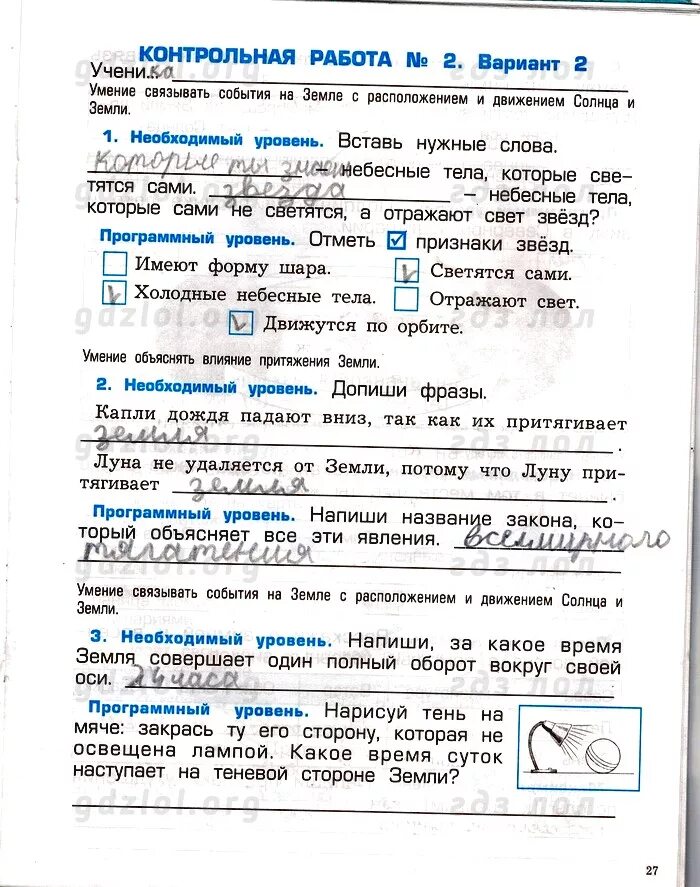 КОНТРОЛЬНАЯ РАБОТА № 2. Вариант 2
Учени.ка
Умение связывать события на Земле с расположением и движением Солнца и
Земли.
1. Необходимый уровень. Вставь нужные слова.
которые ты знает – небесные тела, которые све-
тятся сами. звезда – небесные тела,
которые сами не светятся, а отражают свет звёзд?
Программный уровень. Отметь ☑ признаки звёзд.
Имеют форму шара. Светятся сами.
Холодные небесные тела. Отражают свет.
Движутся по орбите.
Умение объяснять влияние притяжения Земли.
2. Необходимый уровень. Допиши фразы.
Капли дождя падают вниз, так как их притягивает
земля .
Луна не удаляется от Земли, потому что Луну при-
тягивает земля .
Программный уровень. Напиши название закона, ко-
торый объясняет все эти явления. всемирного
тягатения .
Умение связывать события на Земле с расположением и движением Солнца и
Земли.
3. Необходимый уровень. Напиши, за какое время
Земля совершает один полный оборот вокруг своей
оси. 24 часа
Программный уровень. Нарисуй тень на
мяче: закрась ту его сторону, которая не
освещена лампой. Какое время суток
наступает на теневой стороне Земли?
gdzlol.org гдз лол
27